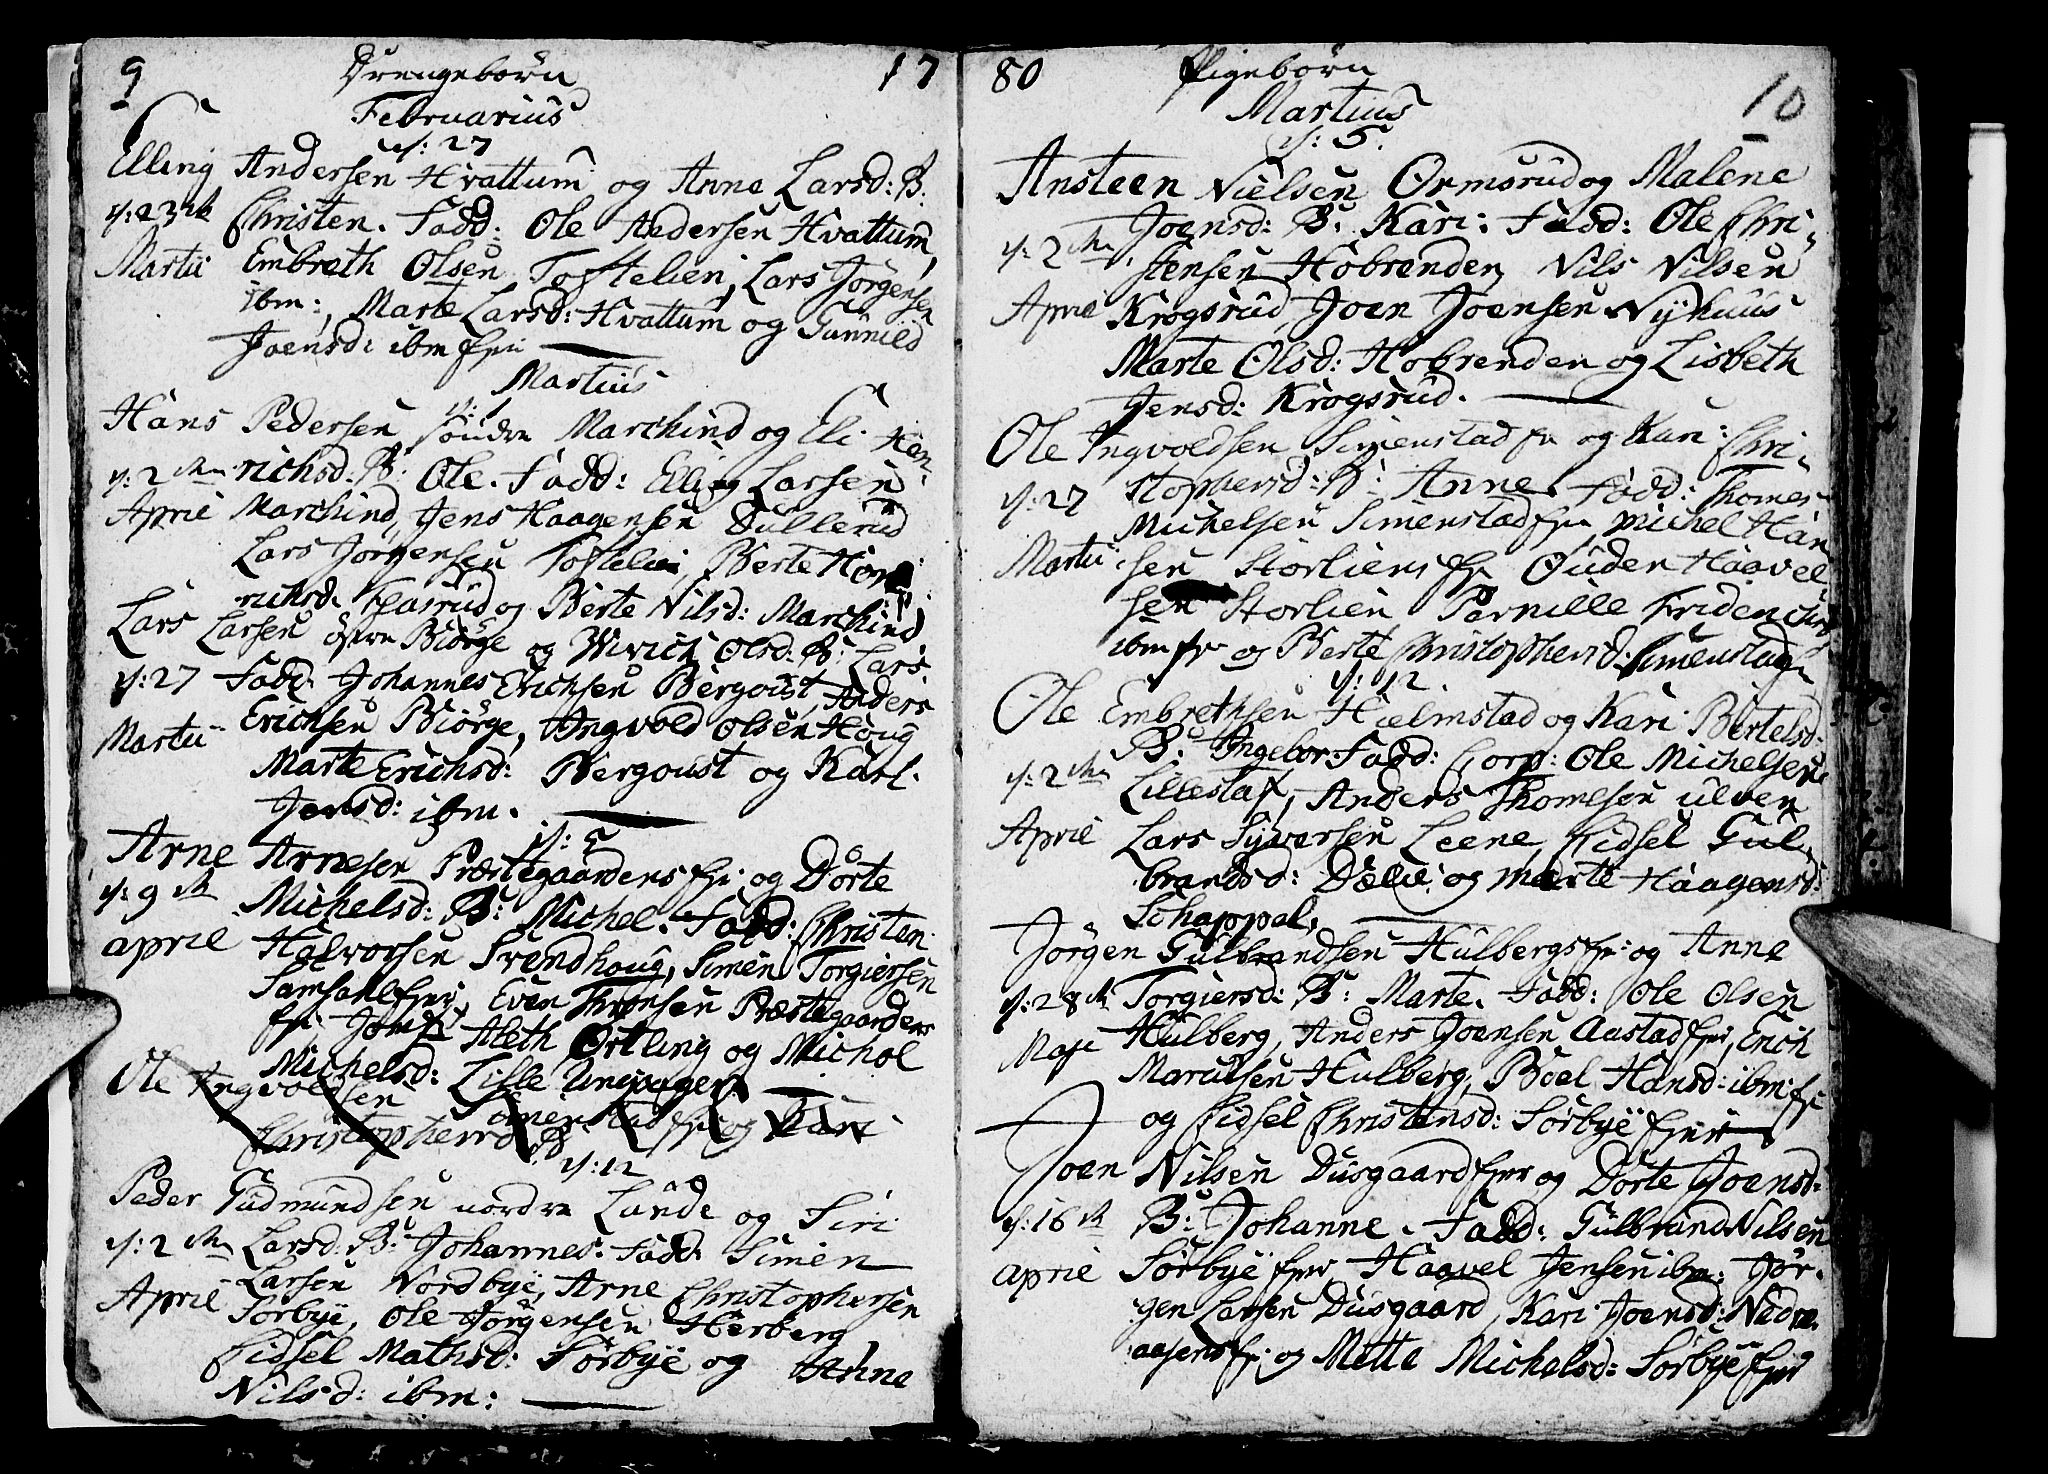 9 Drengebörn 17
Februarius
d: 27
Elling Andersen Hvattum og Anne Larsd: B:
d: 23de Christen. Fadd: Ole Andersen Hvattum,
Martii Embreth Olsen Tostelien, Lars Jörgensen
ibm:, Marte Larsd: Hvattum og Gunnild
Joensd: ibm fri
Martius
d: 1
Hans Pedersen söndre Marchind og Eli Hen-
d: 2den richsd: B: Ole. Fadd: Elling Larsen
April Marchind, Jens Haagensen Dullerud
Lars Jörgensen Tostelien, Berte Hen
richsd: og Berte Nilsd: Marchind
Lars Larsen östre Biörge og Olsd: B: Lars
d: 27 Fadd: Johannes Erichsen Bergoust, Anders
Martii Erichsen Biörge, Ingvold Olsen Houg
Marte Erichsd: Bergoust og Kari
Jensd: ibm.
d: 5
Arne Arnesen Præstegaardens fri og Dörte
d: 9de Michelsd: B: Michel. Fadd: Christen
april Halvorsen Svendhoug, Simen Torgiersen
Samsahl fri, Even Thronsen Præstegaardens
fri Jomfr Aleth Örtling og Michol
Michelsd: Lille
Ole Ingvoldsen Simenstad fri og Kari
Christophersd: B
d: 12
Peder Gudmundsen nordre Lunde og Siri
d: 2den Larsd: B: Johannes. Fadd: Simen
April Larsen Nordbye, Arne Christophersen
Sorbye, Ole Jörgensen Herberg
Sidsel Mathsd: Sörbye og Anne
Nilsd: ibm:
80 Pigebörn 10
Martius
d: 5.
Ansteen Nielsen Ormsrud og Malene
Joensd: B: Kari: Fadd: Ole Chri-
d: 2den stensen Hobrenden, Nils Nilsen
April Krogsrud, Joen Joensen Nyhuus
Marte Olsd: Hobrenden og Lisbeth
Jensd: Krogsrud.
Ole Ingvoldsen Simenstad fri og Kari Chri-
d: 27 stophersd: B: Anne. Fadd: Thomes
Michelsen Simenstad fri Michel Han
Martii sen Storliens fri Ouden Haavel
sen Storlien Pernille Fridenchsd
ibm fri og Berte Christophersd: Simenstad fri
d: 12
Ole Embrethsen Hielmstad og Kari Bertelsd:
B: Ingebor: Fadd: Corp: Ole Michelsen
d: 2den Lillestaf, Anders Thomesen ulven
April Lars Syversen Leene, Sidsel Gul-
brandsd: Dælie og Marte Haagensd:
Schappel,
Jörgen Gulbrandsen Hulbergs fri: og Anne
d: 28de Torgiersd: B: Marte. Fadd: Ole Olsen
Maje Hulberg, Anders Joensen Aastad fri, Erich
Marcusen Hulberg, Boel Hansd: ibm: fri
og Sidsel Christensd: Sörbye frie
Joen Nilsen Dusgaard fri og Dörte Joensd:
d: 16de B: Johanne. Fadd: Gulbrand Nilsen
april Sörbye fri Haavel Jensen ibm: Jör-
gen Larsen Dusgaard, Kari Joensd: Nedre
aasens fr: og Mette Michelsd: Sorbye fri